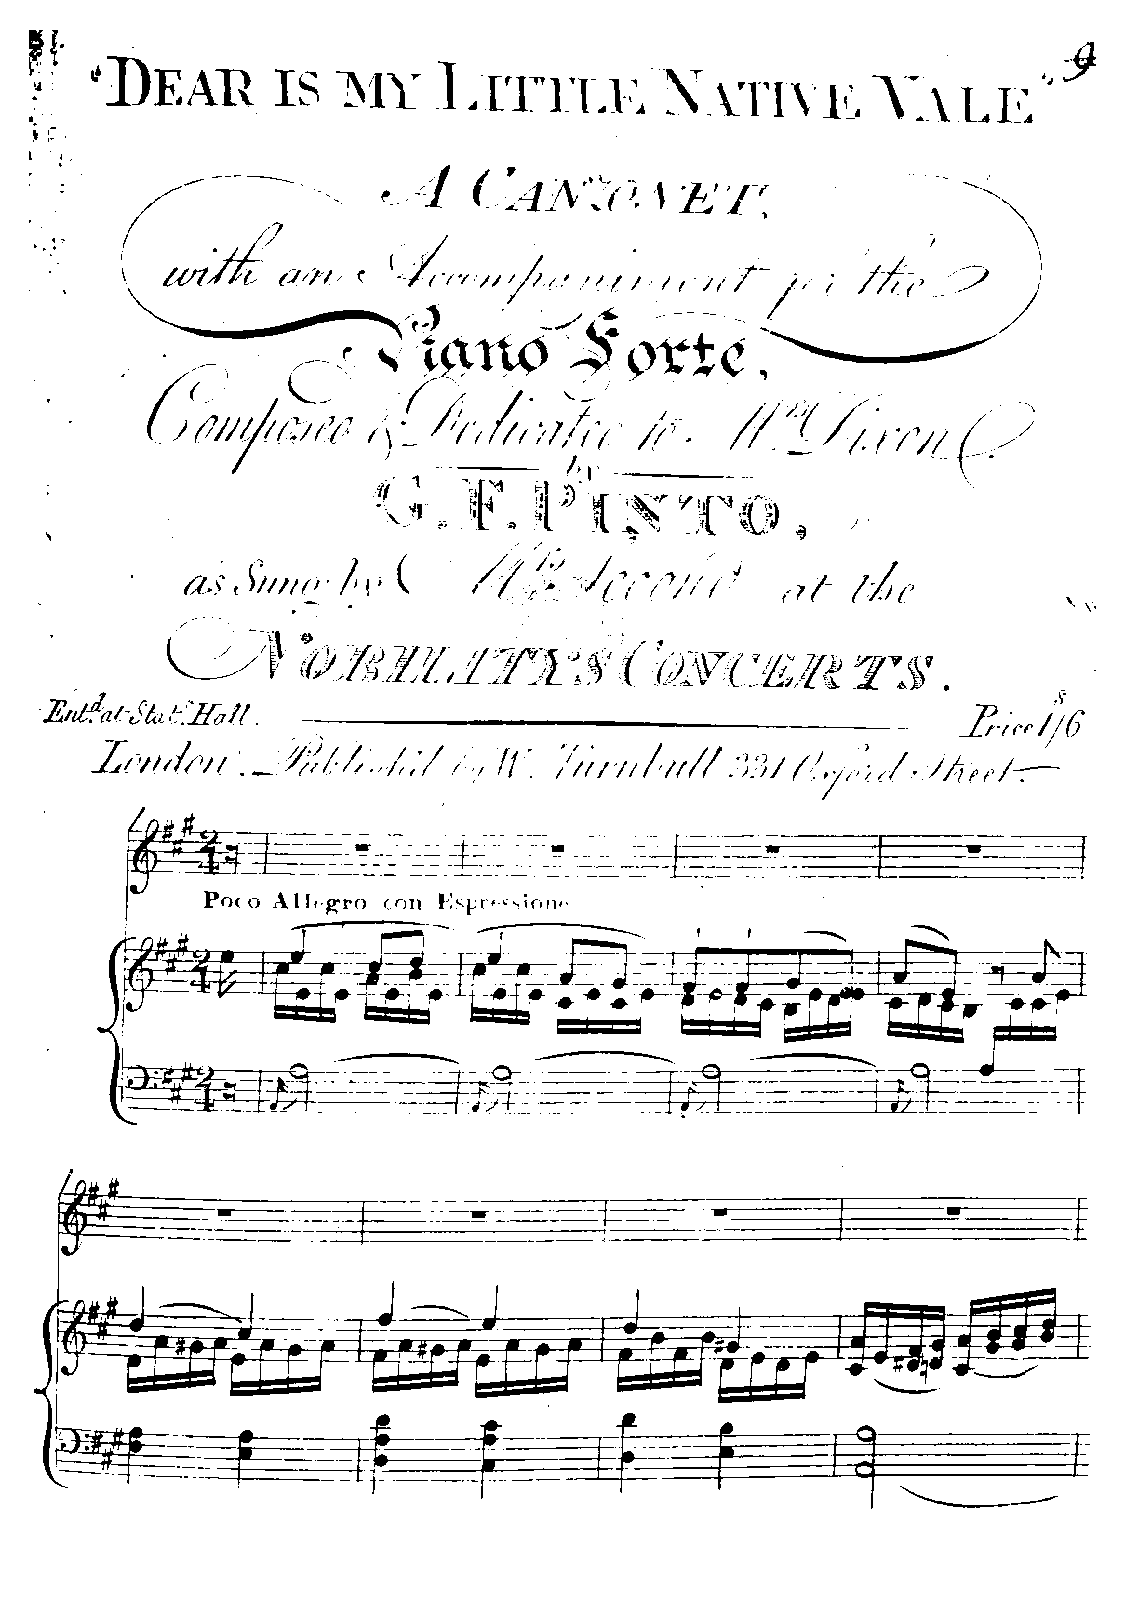 9
"DEAR IS MY LITTLE NATIVE VALE"
A CANZONET,
with an Accompaniment for the
Piano Forte,
Composed & Dedicated to Wm Dixon
by
G. F. PINTO,
as Sung by Mrs Second at the
NOBILITY'S CONCERTS.
Entd. at Stats. Hall. Price 1s/6
London. Published by W. Turnbull 331 Oxford Street.
Poco Allegro con Espressione